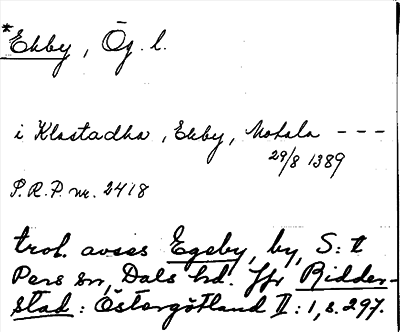 *Ekby, Ög. l.
i Klastadha, Ekby, Motala ---
29/8 1389
P.R.P. nr. 2418
trol. avses Egeby, by, S:t
Pers sn, Dals hd. Jfr Ridder-
stad: Östergötland II:1, s. 297.